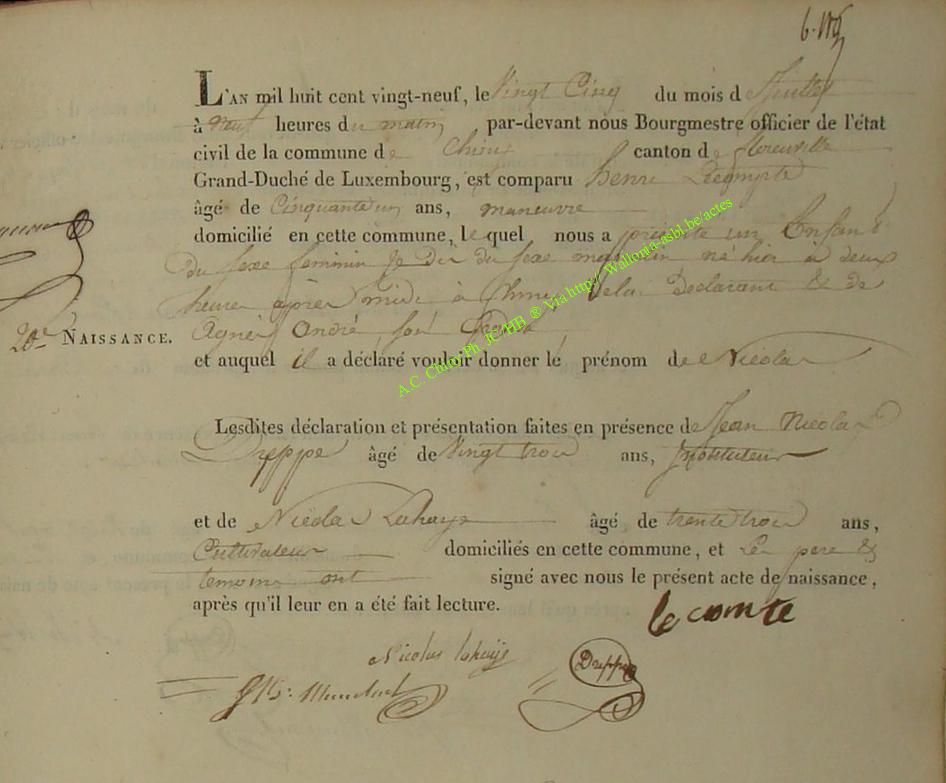 L'AN mil huit cent vingt-neuf, le Vingt Cinq du mois de Juillet
à neuf heures du matin par-devant nous Bourgmestre officier de l'état
civil de la commune de Chiny canton de florenville
Grand-Duché de Luxembourg, est comparu henri Lecompte
âgé de Cinquante un ans, maneuvre
domicilié en cette commune, le quel nous a présenté un Enfant
du sexe feminin je Dis du sexe masculin né hier à deux
heures après midi à Chiny, De lui Declarant & de
Agnès André son
20e NAISSANCE.
et auquel il a déclaré vouloir donner le prénom de Nicolas
Lesdites déclaration et présentation faites en présence de Jean Nicolas
Dreppe âgé de Vingt trois ans, Instituteur
et de Nicolas Lahaye âgé de trente trois ans,
Cultivateur domiciliés en cette commune, et Le pere &
temoins ont signé avec nous le présent acte de naissance,
après qu'il leur en a été fait lecture.
le comte
Nicolas lahaÿe
Dreppe
A.C. Chiny Ph. JC-HB ® Via http://Wallonia-asbl.be/actes